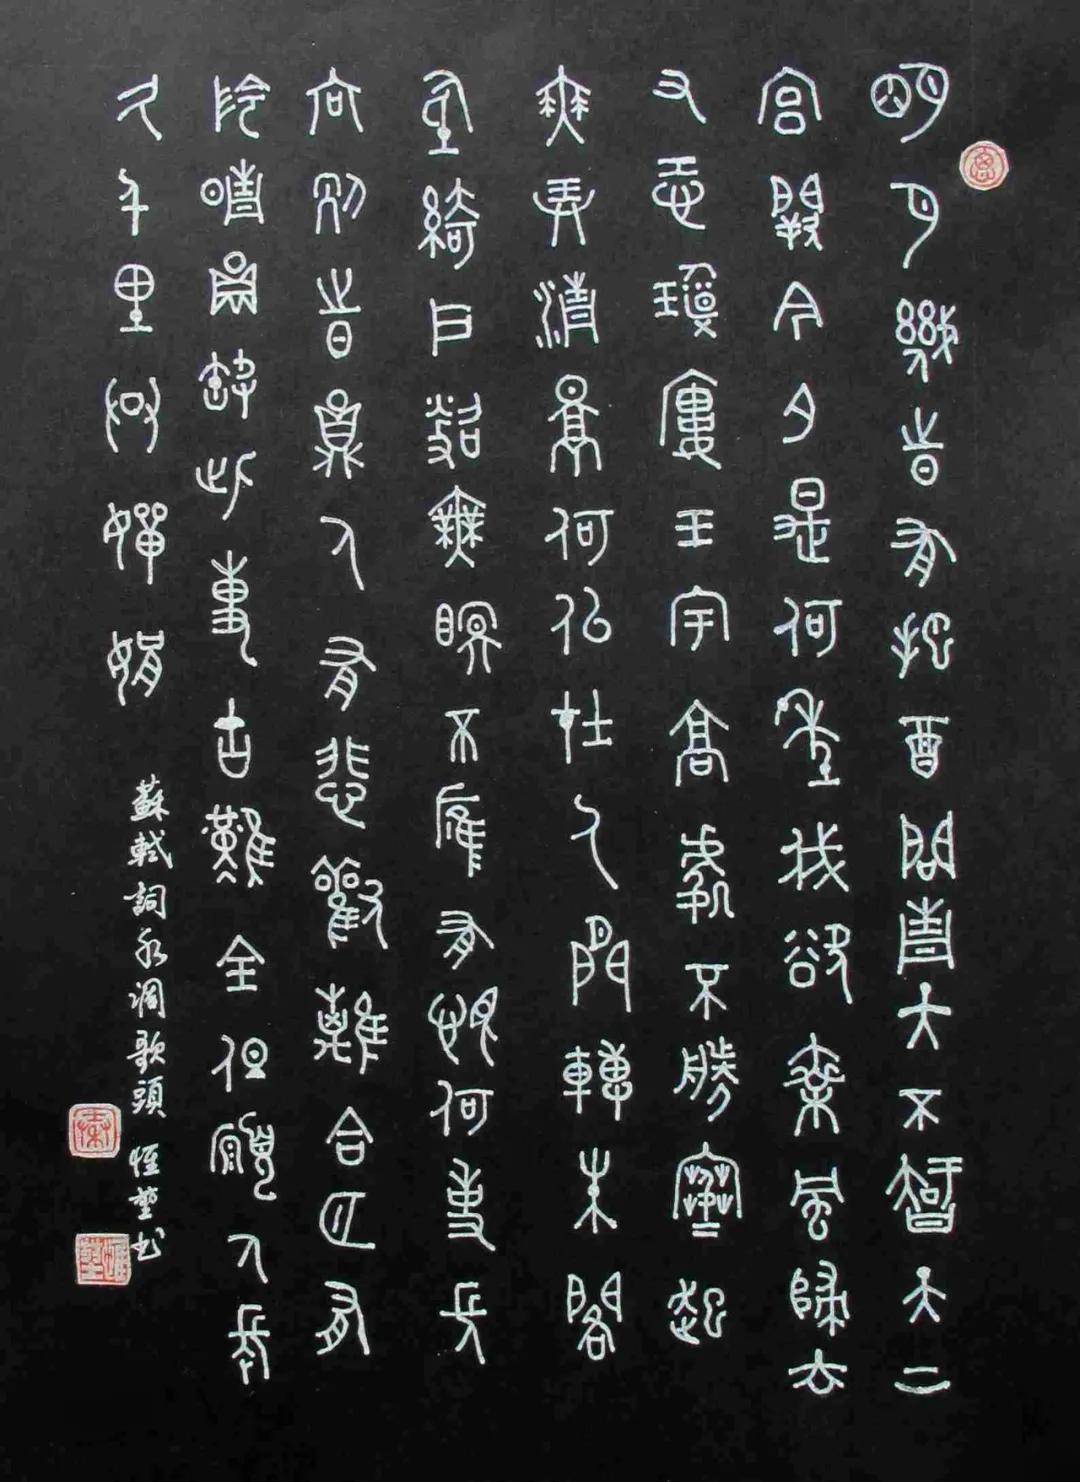 明月幾時有把酒問青天不知天上
宮闕今夕是何年我欲乘風歸去
又恐瓊樓玉宇高處不勝寒起
舞弄清影何似在人間轉朱閣
低綺戶照無眠不應有恨何事長
向別時圓人有悲歡離合月有
陰晴圓缺此事古難全但願人長
久千里共嬋娟
蘇軾詞水調歌頭 恆書